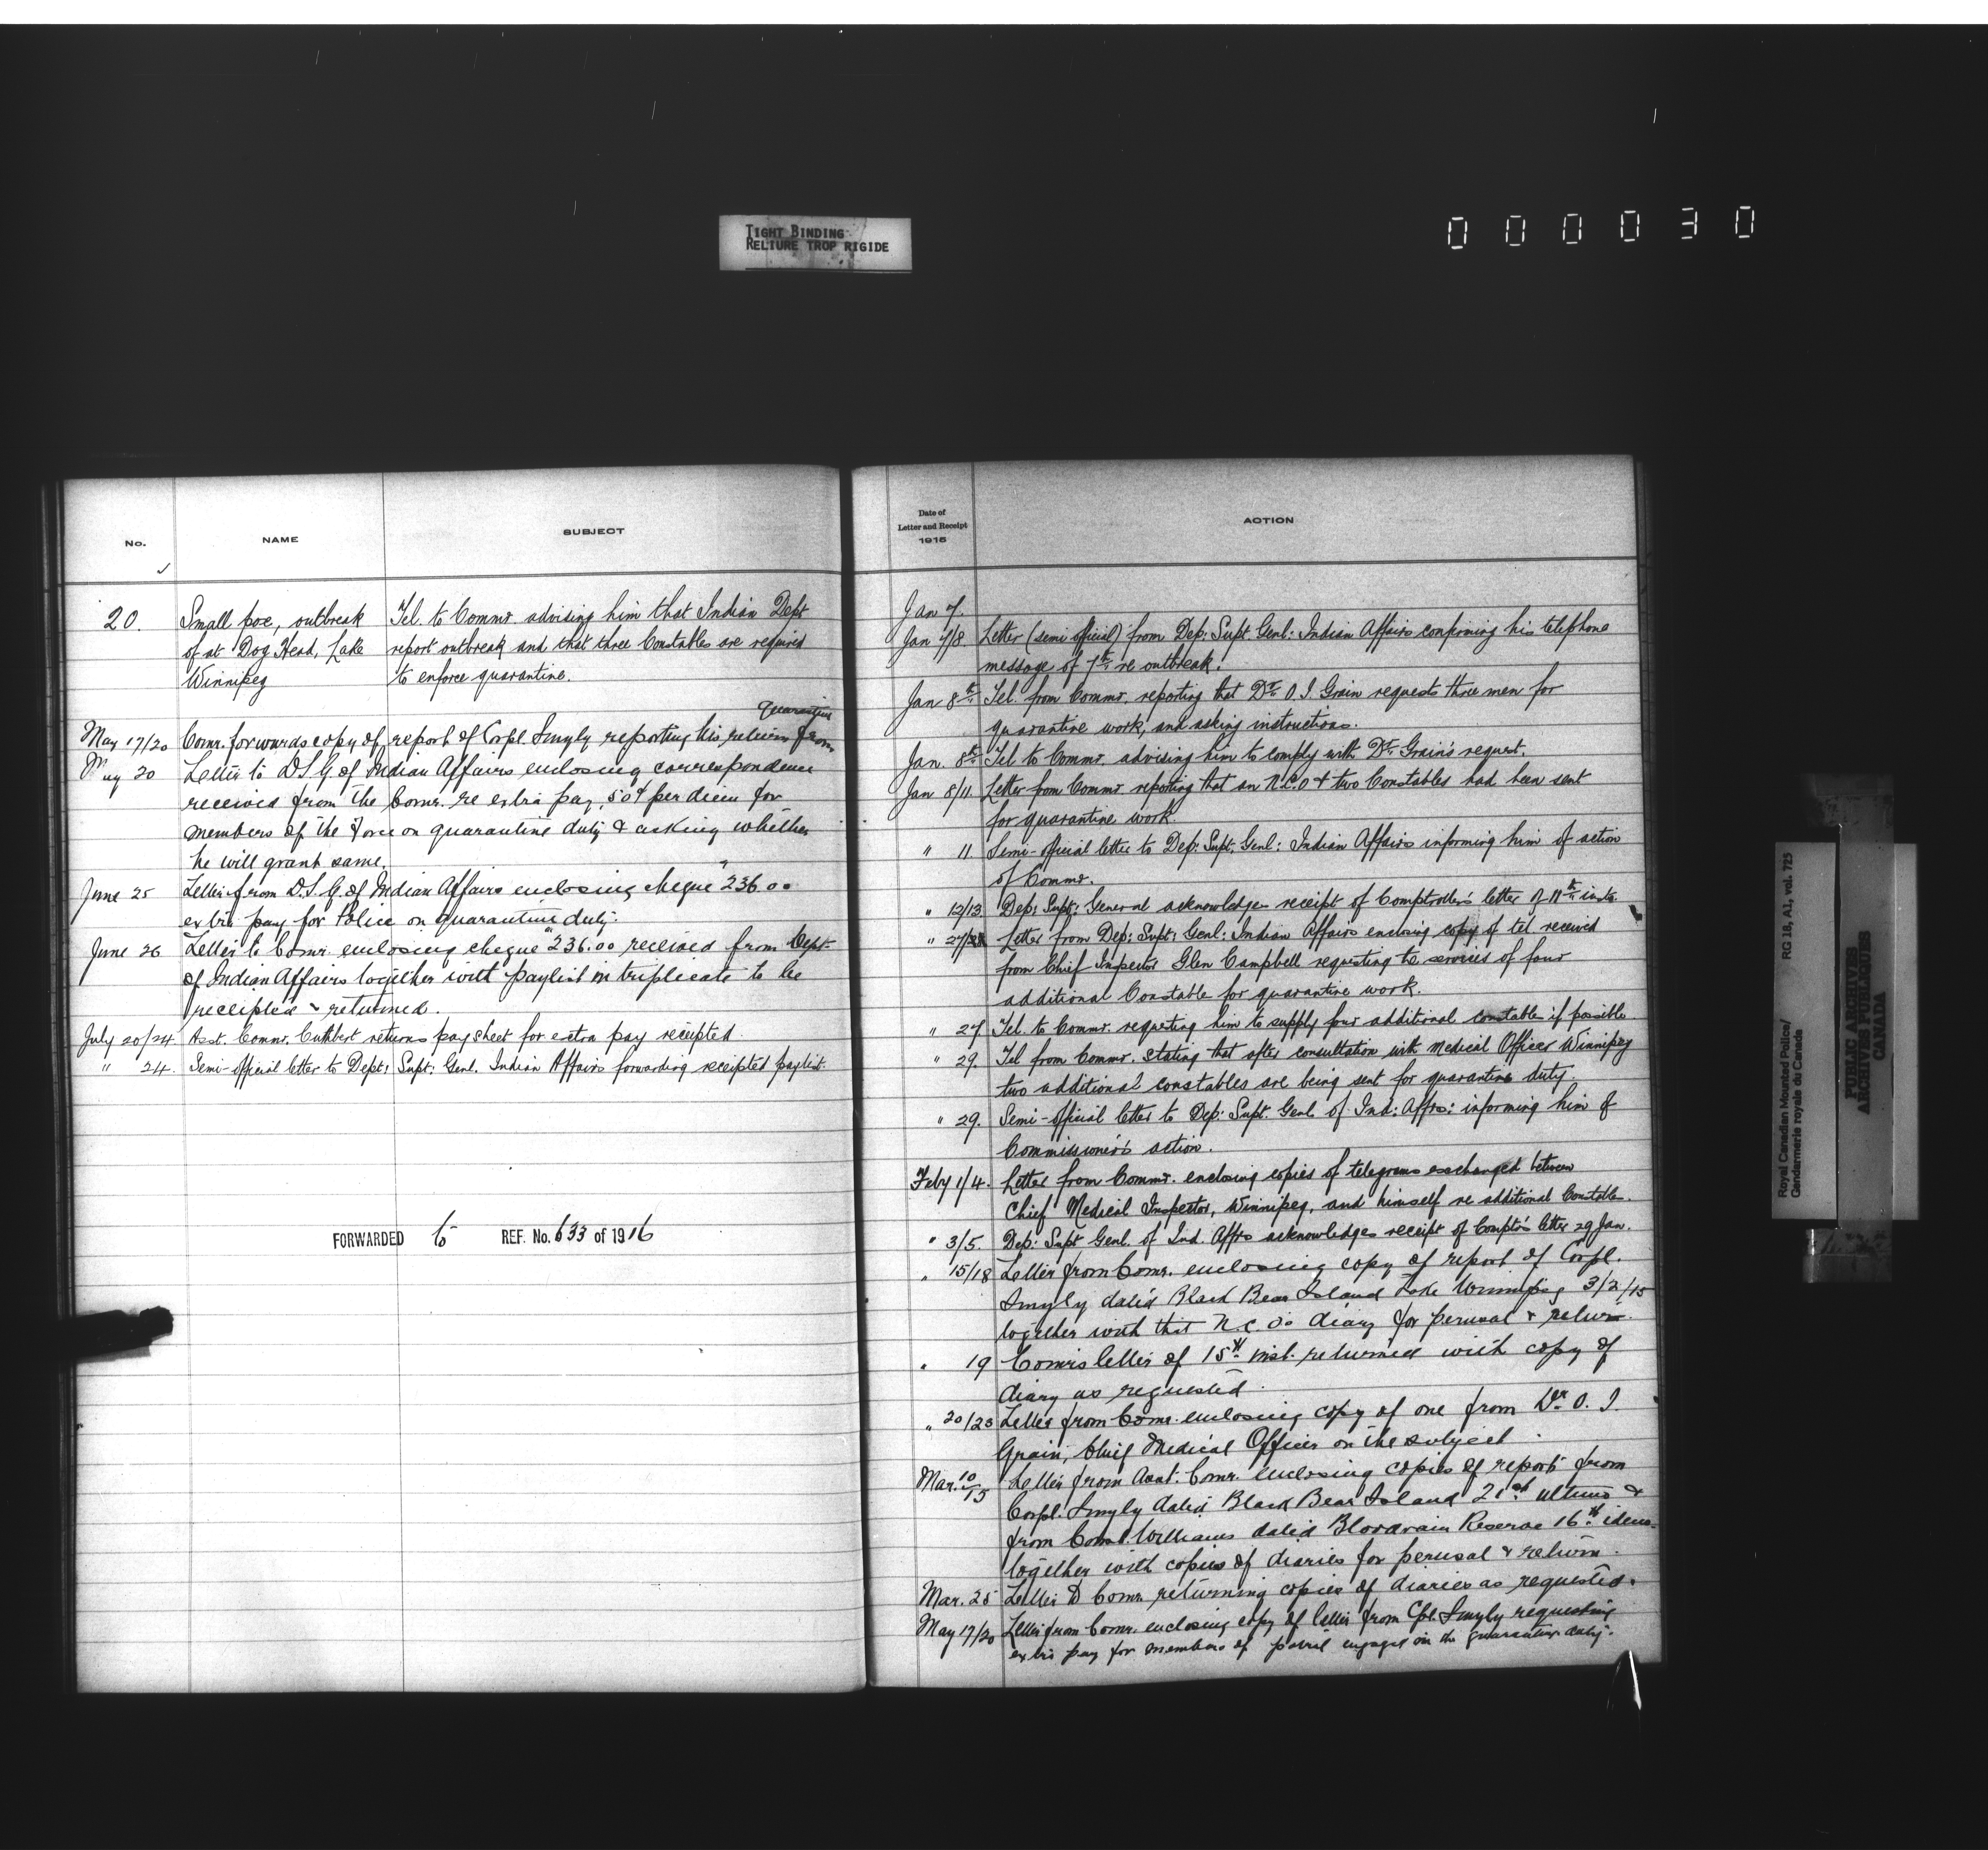 TIGHT BINDING
RELIURE TROP RIGIDE
000030
No.
NAME
SUBJECT
20.
Small pox, outbreak
of at Dog Head, Lake
Winnipeg
Tel. to Commr advising him that Indian Dept
report outbreak and that three Constables are required
to enforce quarantine.
quarantine
May 17/20 Comr. forwards copy of report of Corpl. Smyly reporting his return from
May 20 Letter to D.S.G. of Indian Affairs enclosing correspondence
received from the Comr. re extra pay, 50¢ per diem for
members of the Force on quarantine duty & asking whether
he will grant same.
June 25 Letter from D.S.G. of Indian Affairs enclosing cheque "236.00
extra pay for Police on quarantine duty.
June 26 Letter to Comr. enclosing cheque "236.00 received from Dept.
of Indian Affairs together with paylist in triplicate to be
receipted & returned.
July 20/24 Asst. Commr. Cuthbert returns pay sheet for extra pay receipted.
" 24. Semi-official letter to Dept: Supt: Genl. Indian Affairs forwarding receipted paylist.
FORWARDED to REF. No. 633 of 1916
Date of
Letter and Receipt
1915
ACTION
Jan 7.
Jan 7/8 Letter (semi official) from Dep: Supt. Genl: Indian Affairs confirming his telephone
message of 7th re outbreak.
Jan 8th Tel. from Commr. reporting that Dr. O. I. Grain requests three men for
quarantine work, and asking instructions.
Jan. 8th Tel to Commr. advising him to comply with Dr. Grain's request.
Jan 8/11. Letter from Commr. reporting that an N.C.O & two Constables had been sent
for quarantine work.
" 11. Semi-official letter to Dep: Supt: Genl: Indian Affairs informing him of action
of Commr.
" 12/13 Dep: Supt: General acknowledges receipt of Comptroller's letter of 11th insts.
" 27/ Letter from Dep: Supt: Genl: Indian Affairs enclosing copy of tel received
from Chief Inspector Glen Campbell requesting the services of four
additional Constable for quarantine work.
" 27. Tel. to Commr. requesting him to supply four additional constable if possible
" 29. Tel from Commr. stating that after consultation with Medical Officer Winnipeg
two additional constables are being sent for quarantine duty.
" 29. Semi-official letter to Dep: Supt. Genl. of Ind: Affrs: informing him of
Commissioner's action.
Feby 1/4. Letter from Commr. enclosing copies of telegrams exchanged between
Chief Medical Inspector, Winnipeg, and himself re additional Constable.
" 3/5. Dep: Supt Genl. of Ind. Affrs acknowledges receipt of Compt's letter 29 Jan.
" 15/18 Letter from Comr. enclosing copy of report of Corpl.
Smyly dated Black Bear Island Lake Winnipeg 3/2/15
together with that N.C.O's diary for perusal & return.
" 19 Comr's letter of 15th inst. returned with copy of
diary as requested.
" 20/23 Letter from Comr. enclosing copy of one from Dr. O. I.
Grain, Chief Medical Officer on the subject.
Mar. 10/15 Letter from Asst. Comr. enclosing copies of reports from
Corpl. Smyly dated Black Bear Island 21st ultimo &
from Const. Williams dated Bloodvain Reserve 16th idem.
together with copies of diaries for perusal & return.
Mar. 25 Letter to Comr. returning copies of diaries as requested.
May 17/20 Letter from Comr. enclosing copy of letter from Cpl. Smyly requesting
extra pay for members of patrol engaged in the quarantine duty.
Royal Canadian Mounted Police/
Gendarmerie royale du Canada
RG 18, A1, vol. 725
PUBLIC ARCHIVES
ARCHIVES PUBLIQUES
CANADA